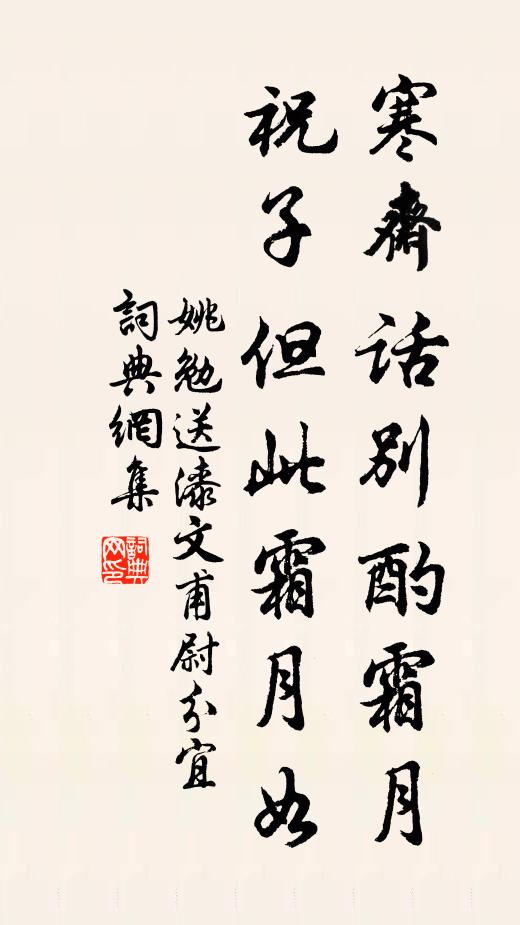 寒齋話別酌霜月
祝子但此霜月如
姚勉送漆文甫尉分宜
詞典網集
詞典網印